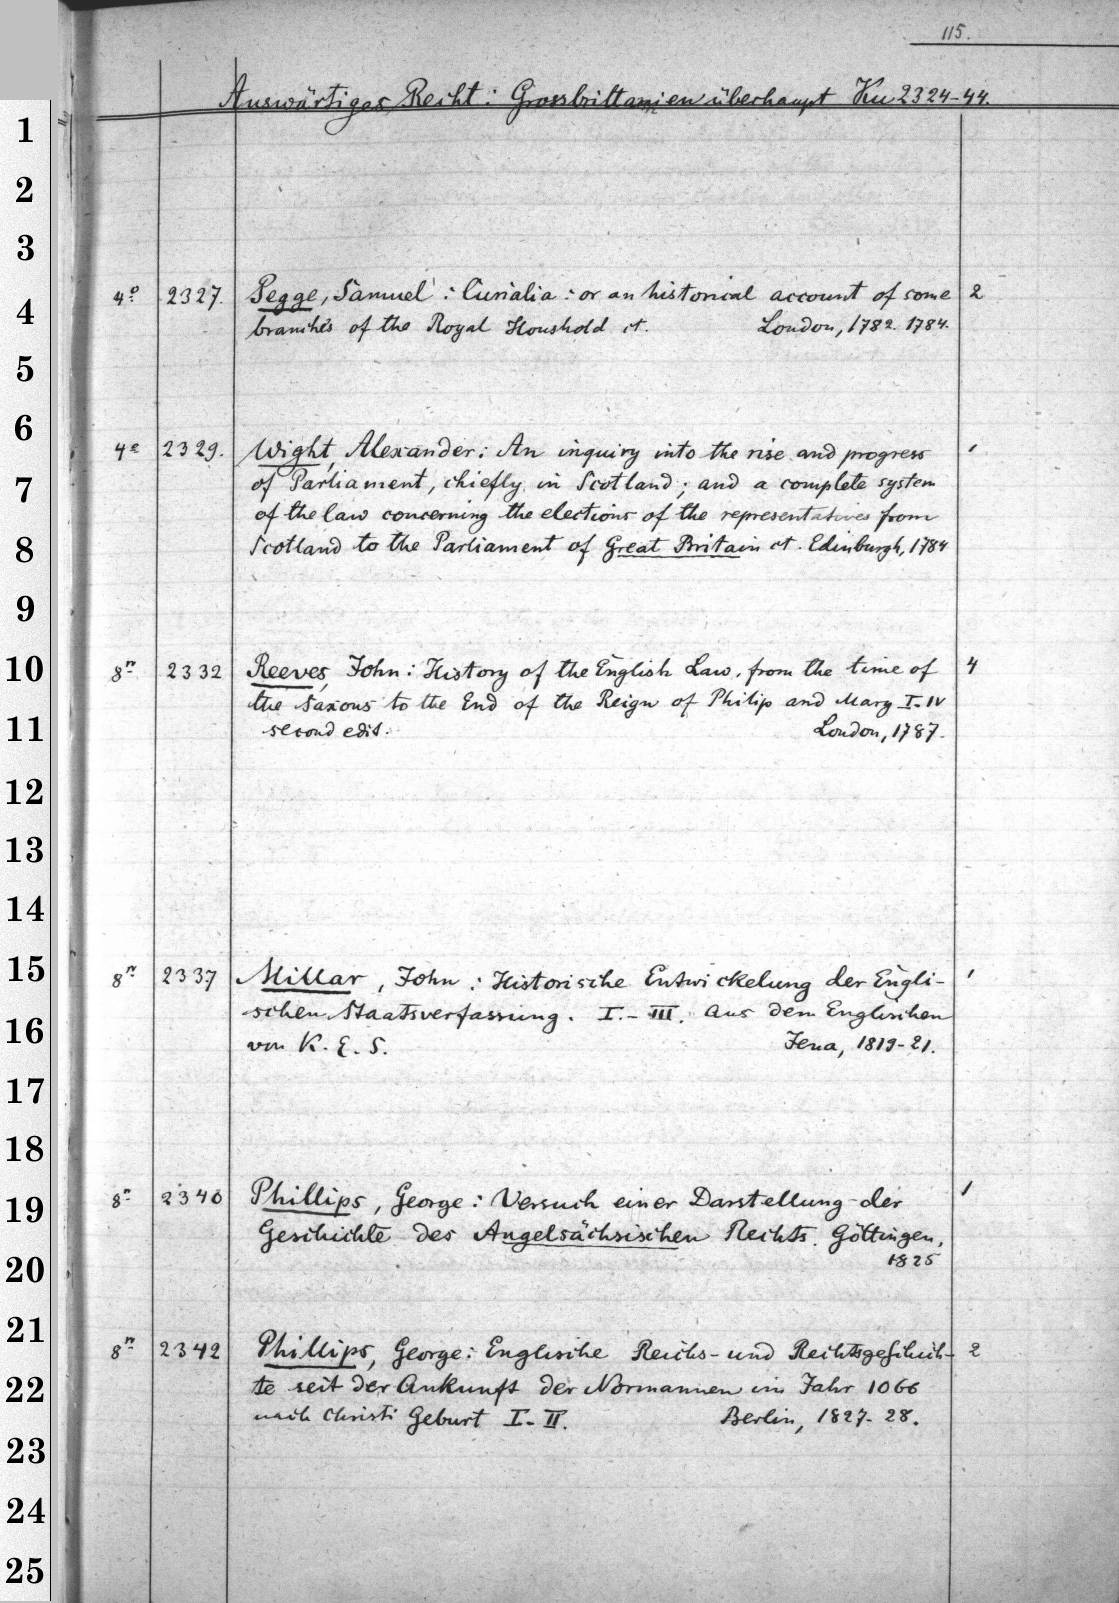 115.
Auswärtiges Recht: Grossbrittannien überhaupt Ku 2324-44.
1
2
3
4º 2327. Pegge, Samuel: Curialia: or an historical account of some 2
4
branches of the Royal Houshold ct. London, 1782. 1784.
5
6
4º 2329. Wight, Alexander: An inquiry into the rise and progress 1
7
of Parliament, chiefly in Scotland; and a complete system
of the law concerning the elections of the representatives from
8
Scotland to the Parliament of Great Britain ct. Edinburgh, 1784
9
10
8º 2332 Reeves, John: History of the English Law, from the time of 4
the Saxons to the End of the Reign of Philip and Mary I-IV
11
second edit. London, 1787.
12
13
14
15
8º 2337 Millar, John: Historische Entwickelung der Engli- 1
schen Staatsverfassung. I.-III. Aus dem Englischen
16
von K. E. S. Jena, 1819-21.
17
18
8º 2340 Phillips, George: Versuch einer Darstellung der 1
19
Geschichte des Angelsächsischen Rechts. Göttingen,
1825
20
21
8º 2342 Phillips, George: Englische Reichs- und Rechtsgeschich- 2
22
te seit der Ankunft der Normannen im Jahr 1066
nach Christi Geburt I-II. Berlin, 1827-28.
23
24
25